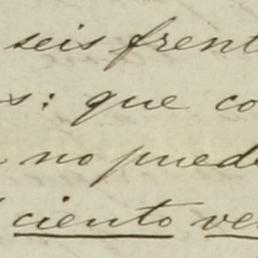 seis frent
s: que co
no pued
ciento ve